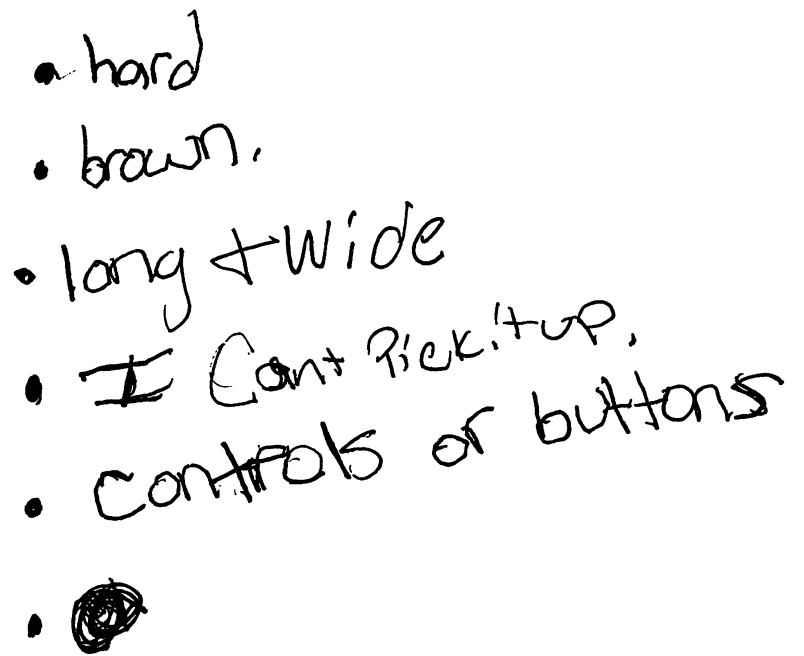 • hard
• brown.
• long + wide
• I Cant Pick it up.
• controls or buttons
•